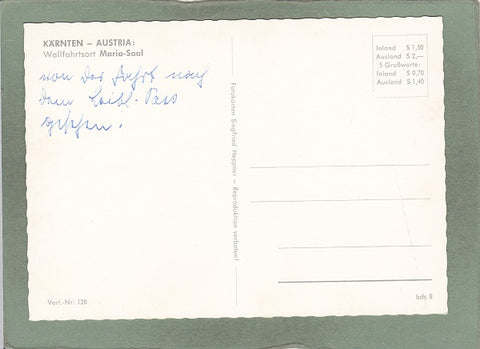 KÄRNTEN – AUSTRIA:
Wallfahrtsort Maria-Saal
von der Fahrt nach
dem Loibl-Pass
gesehen.
Inland S 1,50
Ausland S 2,—
5 Grußworte:
Inland S 0,70
Ausland S 1,40
Fotokarten Siegfried Heppner – Reproduktion verboten!
Verl.-Nr. 120
bdc 8